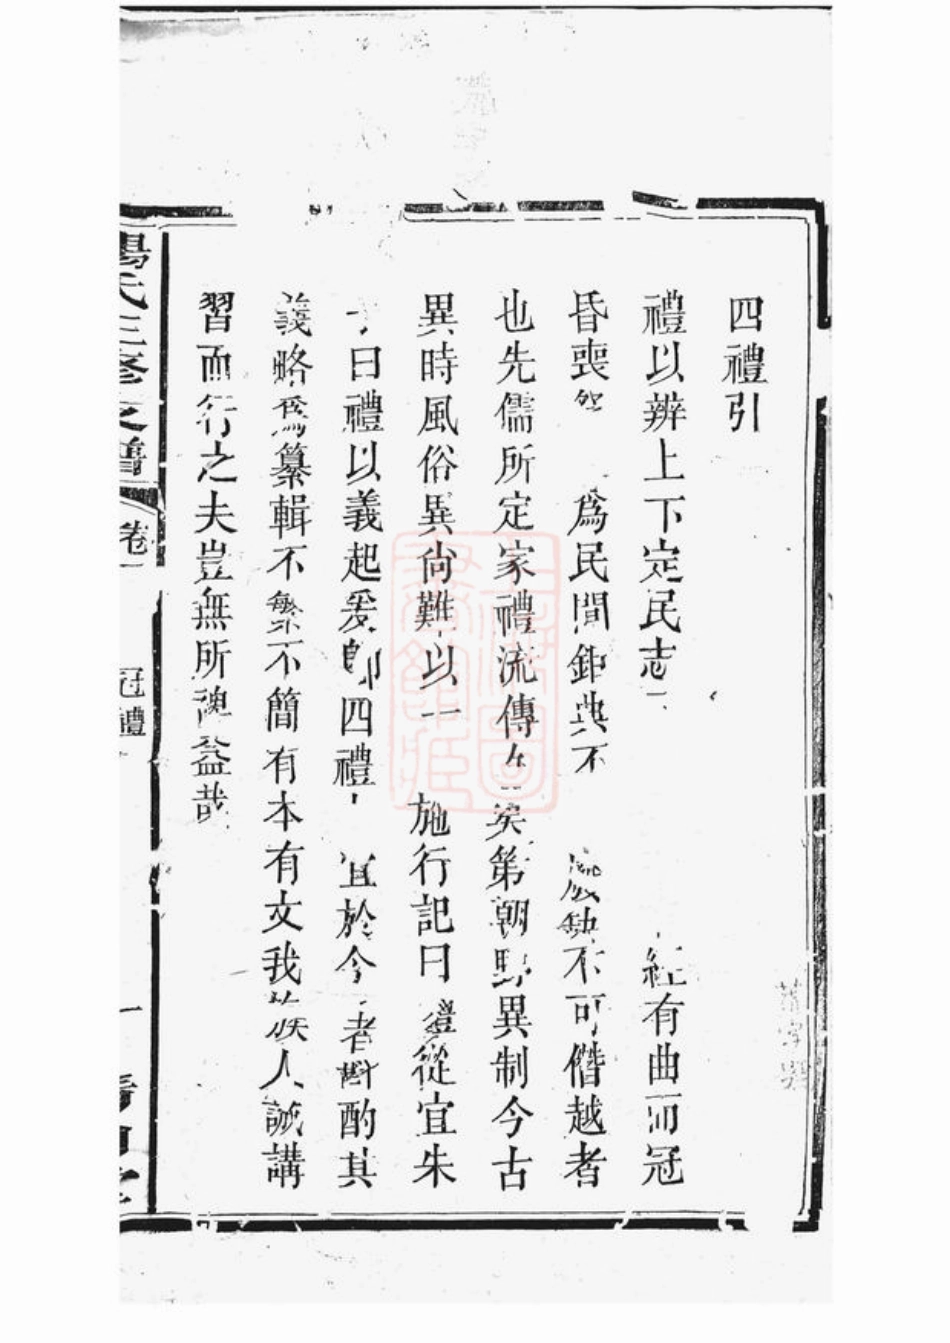 四禮引
禮以辨上下定民志 經有曲而冠
昏喪 爲民間鉅典不 廢缺不可僭越者
也先儒所定家禮流傳 矣第朝野異制今古
異時風俗異尙難以一 施行記曰禮從宜朱
子曰禮以義起爰卽四禮 宜於今者斟酌其
義略爲纂輯不繁不簡有本有文我族人誠講
習而行之夫豈無所裨益哉
楊氏三修支譜
卷一
冠禮
一